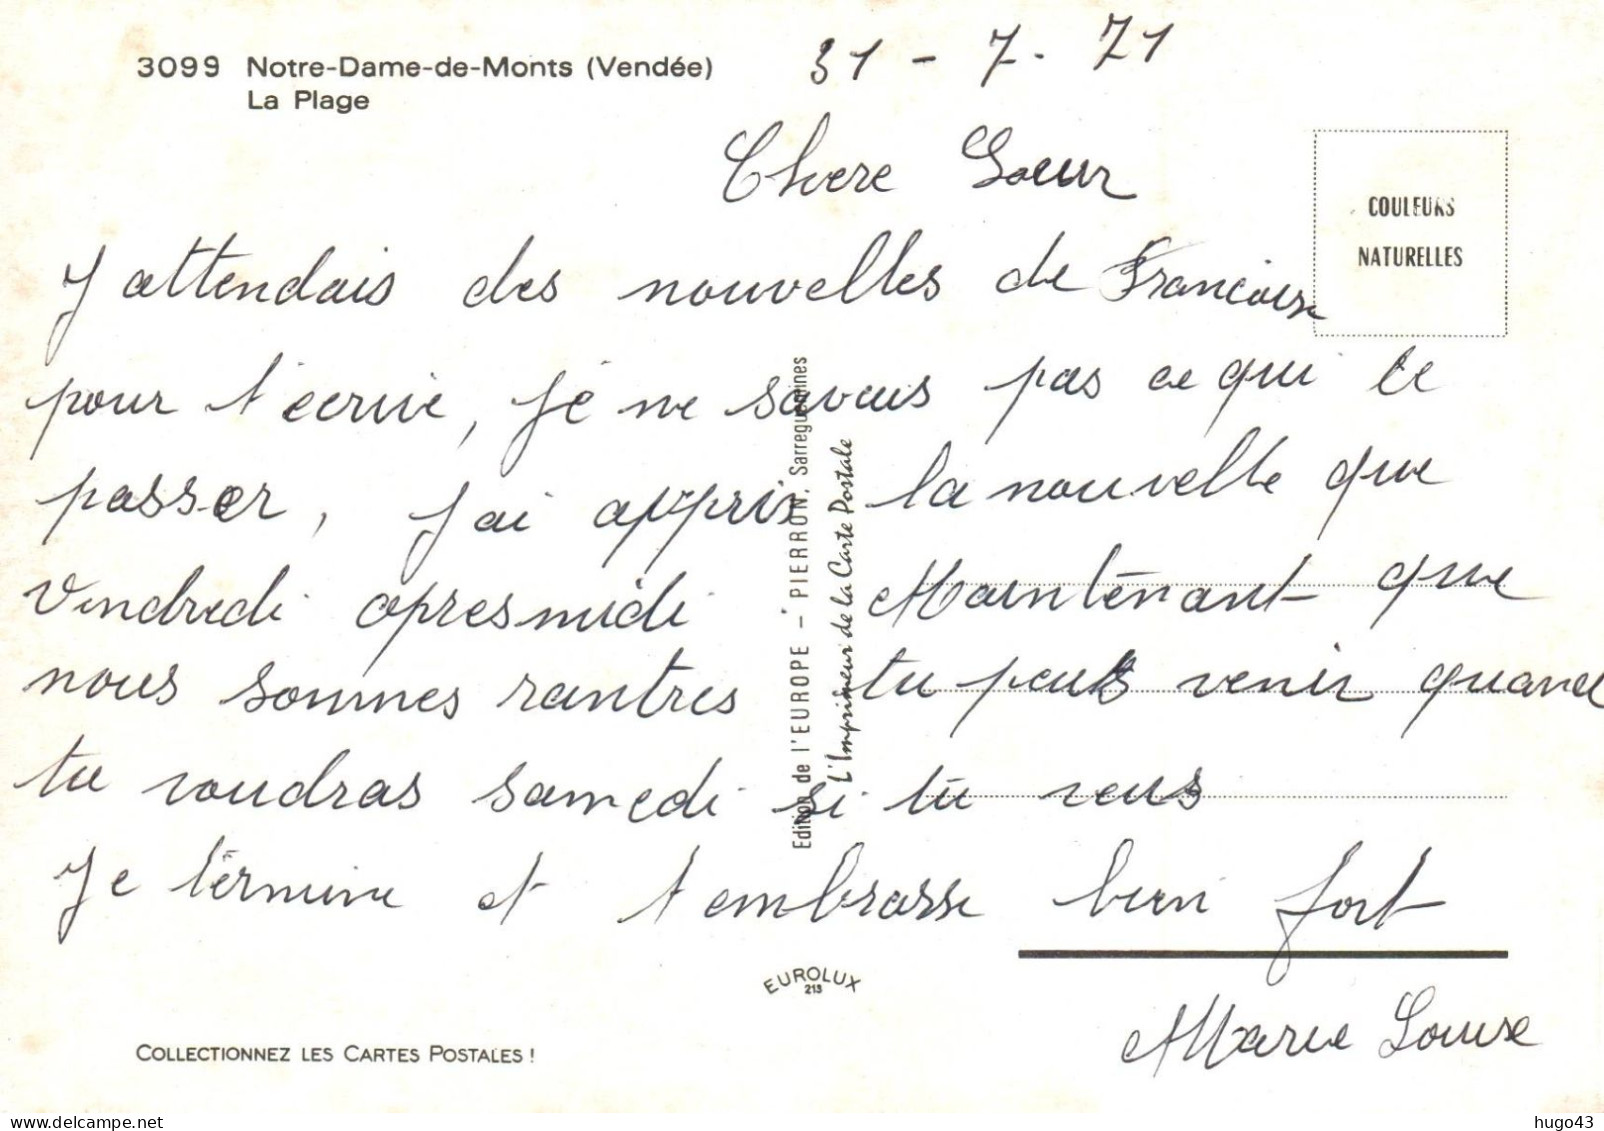 3099 Notre-Dame-de-Monts (Vendée)
La Plage
31 - 7. 71
Chere Soeur
COULEURS
NATURELLES
J attendais des nouvelles de Francoise
pour t'écrire, Je ne savais pas ce qui ce
passer, J'ai appris la nouvelle que
Vendredi apresmidi Maintenant que
nous sommes rantres tu peus venir quand
tu voudras samedi si tu veus
Je termine et t embrasse bien fort
Marie Louise
Edition de l'EUROPE - PIERRON, Sarreguemines
L'Imprimeur de la Carte Postale
EUROLUX
213
COLLECTIONNEZ LES CARTES POSTALES !
hugo43